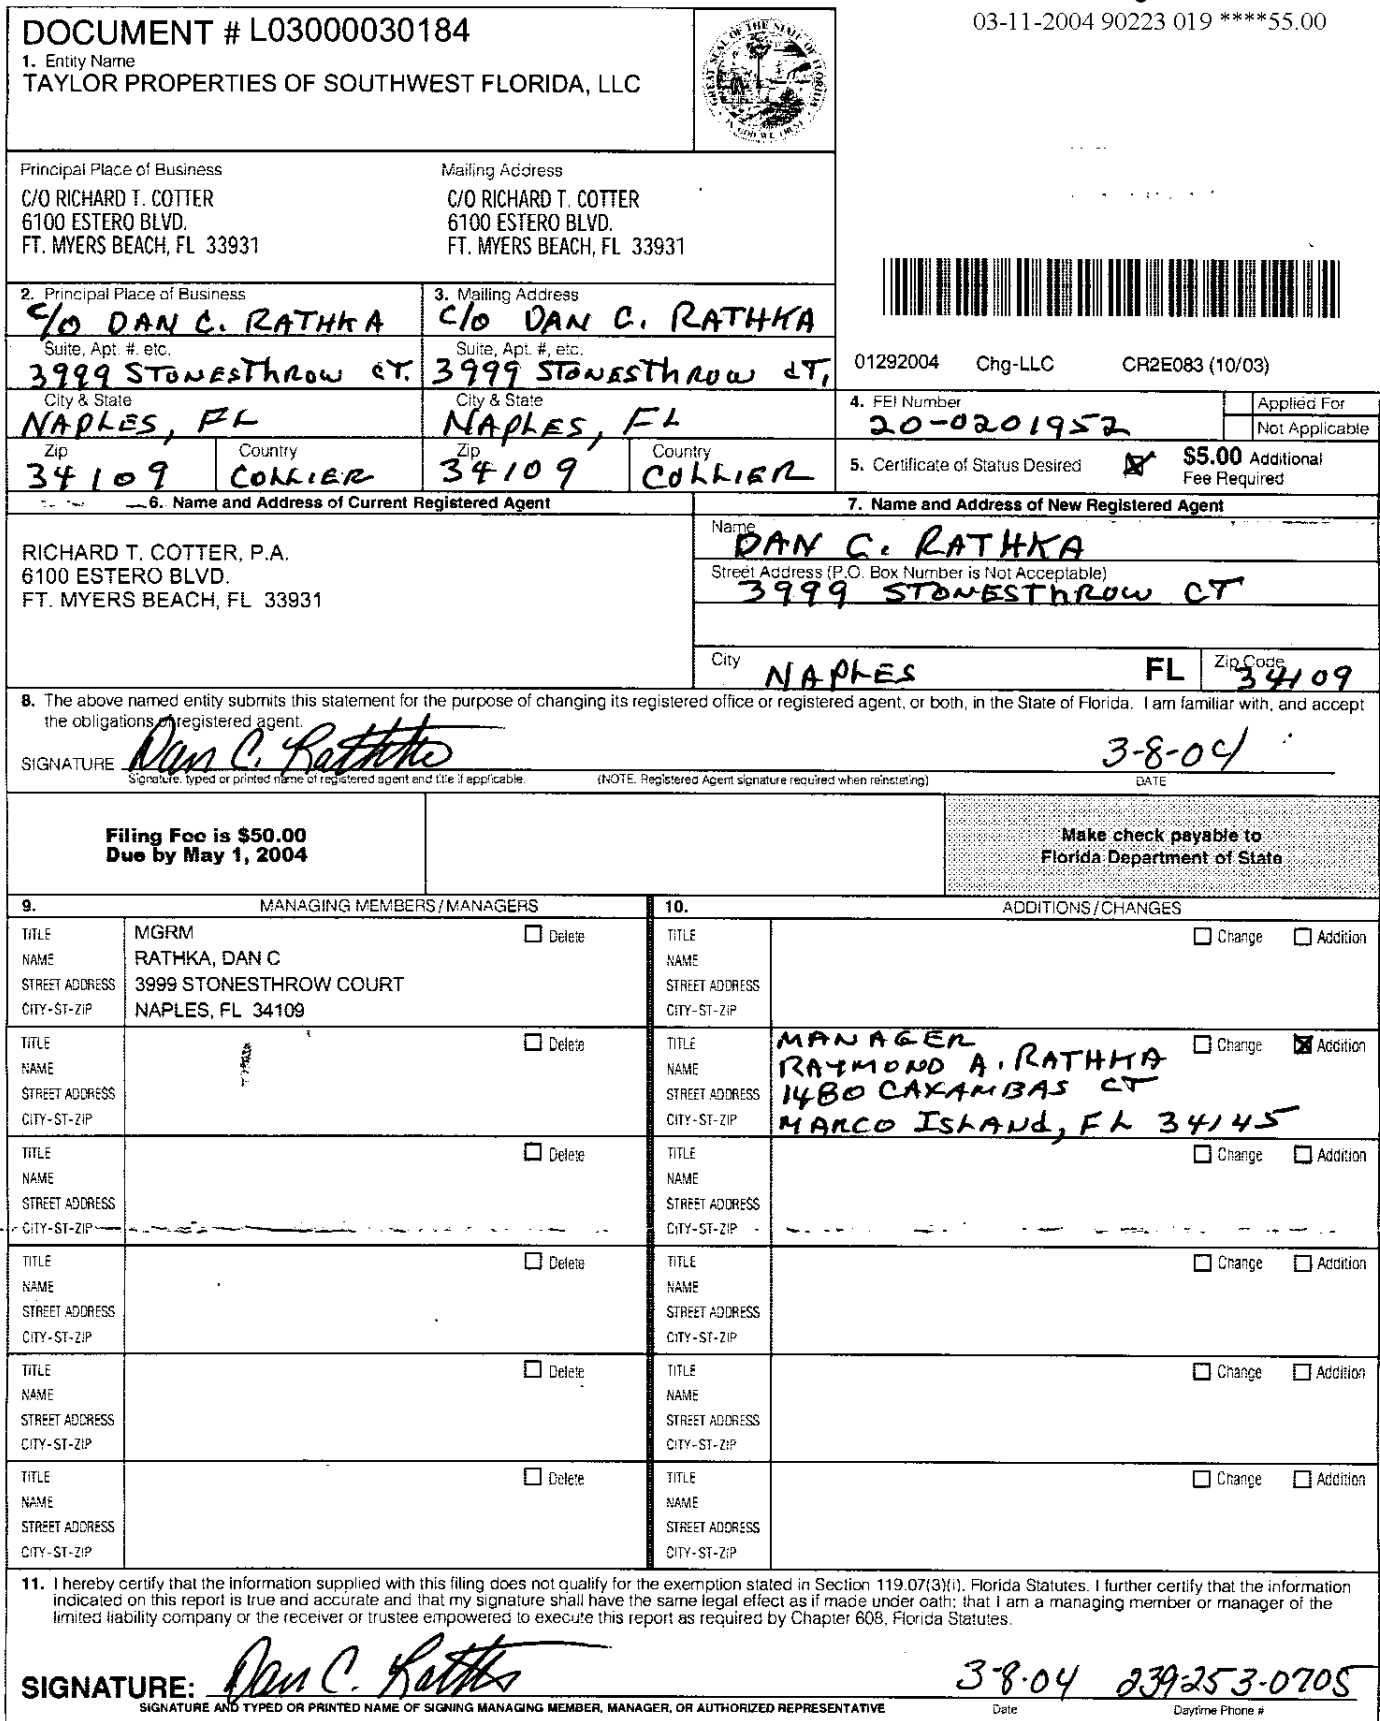 03-11-2004 90223 019 ****55.00
DOCUMENT # L03000030184
1. Entity Name
TAYLOR PROPERTIES OF SOUTHWEST FLORIDA, LLC
Principal Place of Business
C/O RICHARD T. COTTER
6100 ESTERO BLVD.
FT. MYERS BEACH, FL 33931
Mailing Address
C/O RICHARD T. COTTER
6100 ESTERO BLVD.
FT. MYERS BEACH, FL 33931
2. Principal Place of Business
C/O DAN C. RATHKA
Suite, Apt. #, etc.
3999 STONESThROW CT.
City & State
NAPLES, FL
Zip
34109
Country
COLLIER
3. Mailing Address
C/O DAN C. RATHKA
Suite, Apt. #, etc.
3999 STONESThROW CT,
City & State
NAPLES, FL
Zip
34109
Country
COLLIER
01292004 Chg-LLC CR2E083 (10/03)
4. FEI Number
20-0201952
Applied For
Not Applicable
5. Certificate of Status Desired
$5.00 Additional
Fee Required
6. Name and Address of Current Registered Agent
RICHARD T. COTTER, P.A.
6100 ESTERO BLVD.
FT. MYERS BEACH, FL 33931
7. Name and Address of New Registered Agent
Name
DAN C. RATHKA
Street Address (P.O. Box Number is Not Acceptable)
3999 STONESThROW CT
City NAPLES FL Zip Code 34109
8. The above named entity submits this statement for the purpose of changing its registered office or registered agent, or both, in the State of Florida. I am familiar with, and accept
the obligations of registered agent.
SIGNATURE Dan C. Rathka 3-8-04
Signature, typed or printed name of registered agent and title if applicable. (NOTE. Registered Agent signature required when reinstating) DATE
Filing Fee is $50.00
Due by May 1, 2004
Make check payable to
Florida Department of State
9. MANAGING MEMBERS/MANAGERS
10. ADDITIONS/CHANGES
TITLE MGRM Delete
NAME RATHKA, DAN C
STREET ADDRESS 3999 STONESTHROW COURT
CITY-ST-ZIP NAPLES, FL 34109
TITLE Change Addition
NAME
STREET ADDRESS
CITY-ST-ZIP
TITLE Delete
NAME
STREET ADDRESS
CITY-ST-ZIP
TITLE MANAGER Change Addition
NAME RAYMOND A. RATHKA
STREET ADDRESS 1480 CAXAMBAS CT
CITY-ST-ZIP MARCO ISLANd, FL 34145
TITLE Delete
NAME
STREET ADDRESS
CITY-ST-ZIP
TITLE Change Addition
NAME
STREET ADDRESS
CITY-ST-ZIP
TITLE Delete
NAME
STREET ADDRESS
CITY-ST-ZIP
TITLE Change Addition
NAME
STREET ADDRESS
CITY-ST-ZIP
TITLE Delete
NAME
STREET ADDRESS
CITY-ST-ZIP
TITLE Change Addition
NAME
STREET ADDRESS
CITY-ST-ZIP
TITLE Delete
NAME
STREET ADDRESS
CITY-ST-ZIP
TITLE Change Addition
NAME
STREET ADDRESS
CITY-ST-ZIP
11. I hereby certify that the information supplied with this filing does not qualify for the exemption stated in Section 119.07(3)(i), Florida Statutes. I further certify that the information
indicated on this report is true and accurate and that my signature shall have the same legal effect as if made under oath; that I am a managing member or manager of the
limited liability company or the receiver or trustee empowered to execute this report as required by Chapter 608, Florida Statutes.
SIGNATURE: Dan C. Rathka 3-8-04 239-253-0705
SIGNATURE AND TYPED OR PRINTED NAME OF SIGNING MANAGING MEMBER, MANAGER, OR AUTHORIZED REPRESENTATIVE Date Daytime Phone #